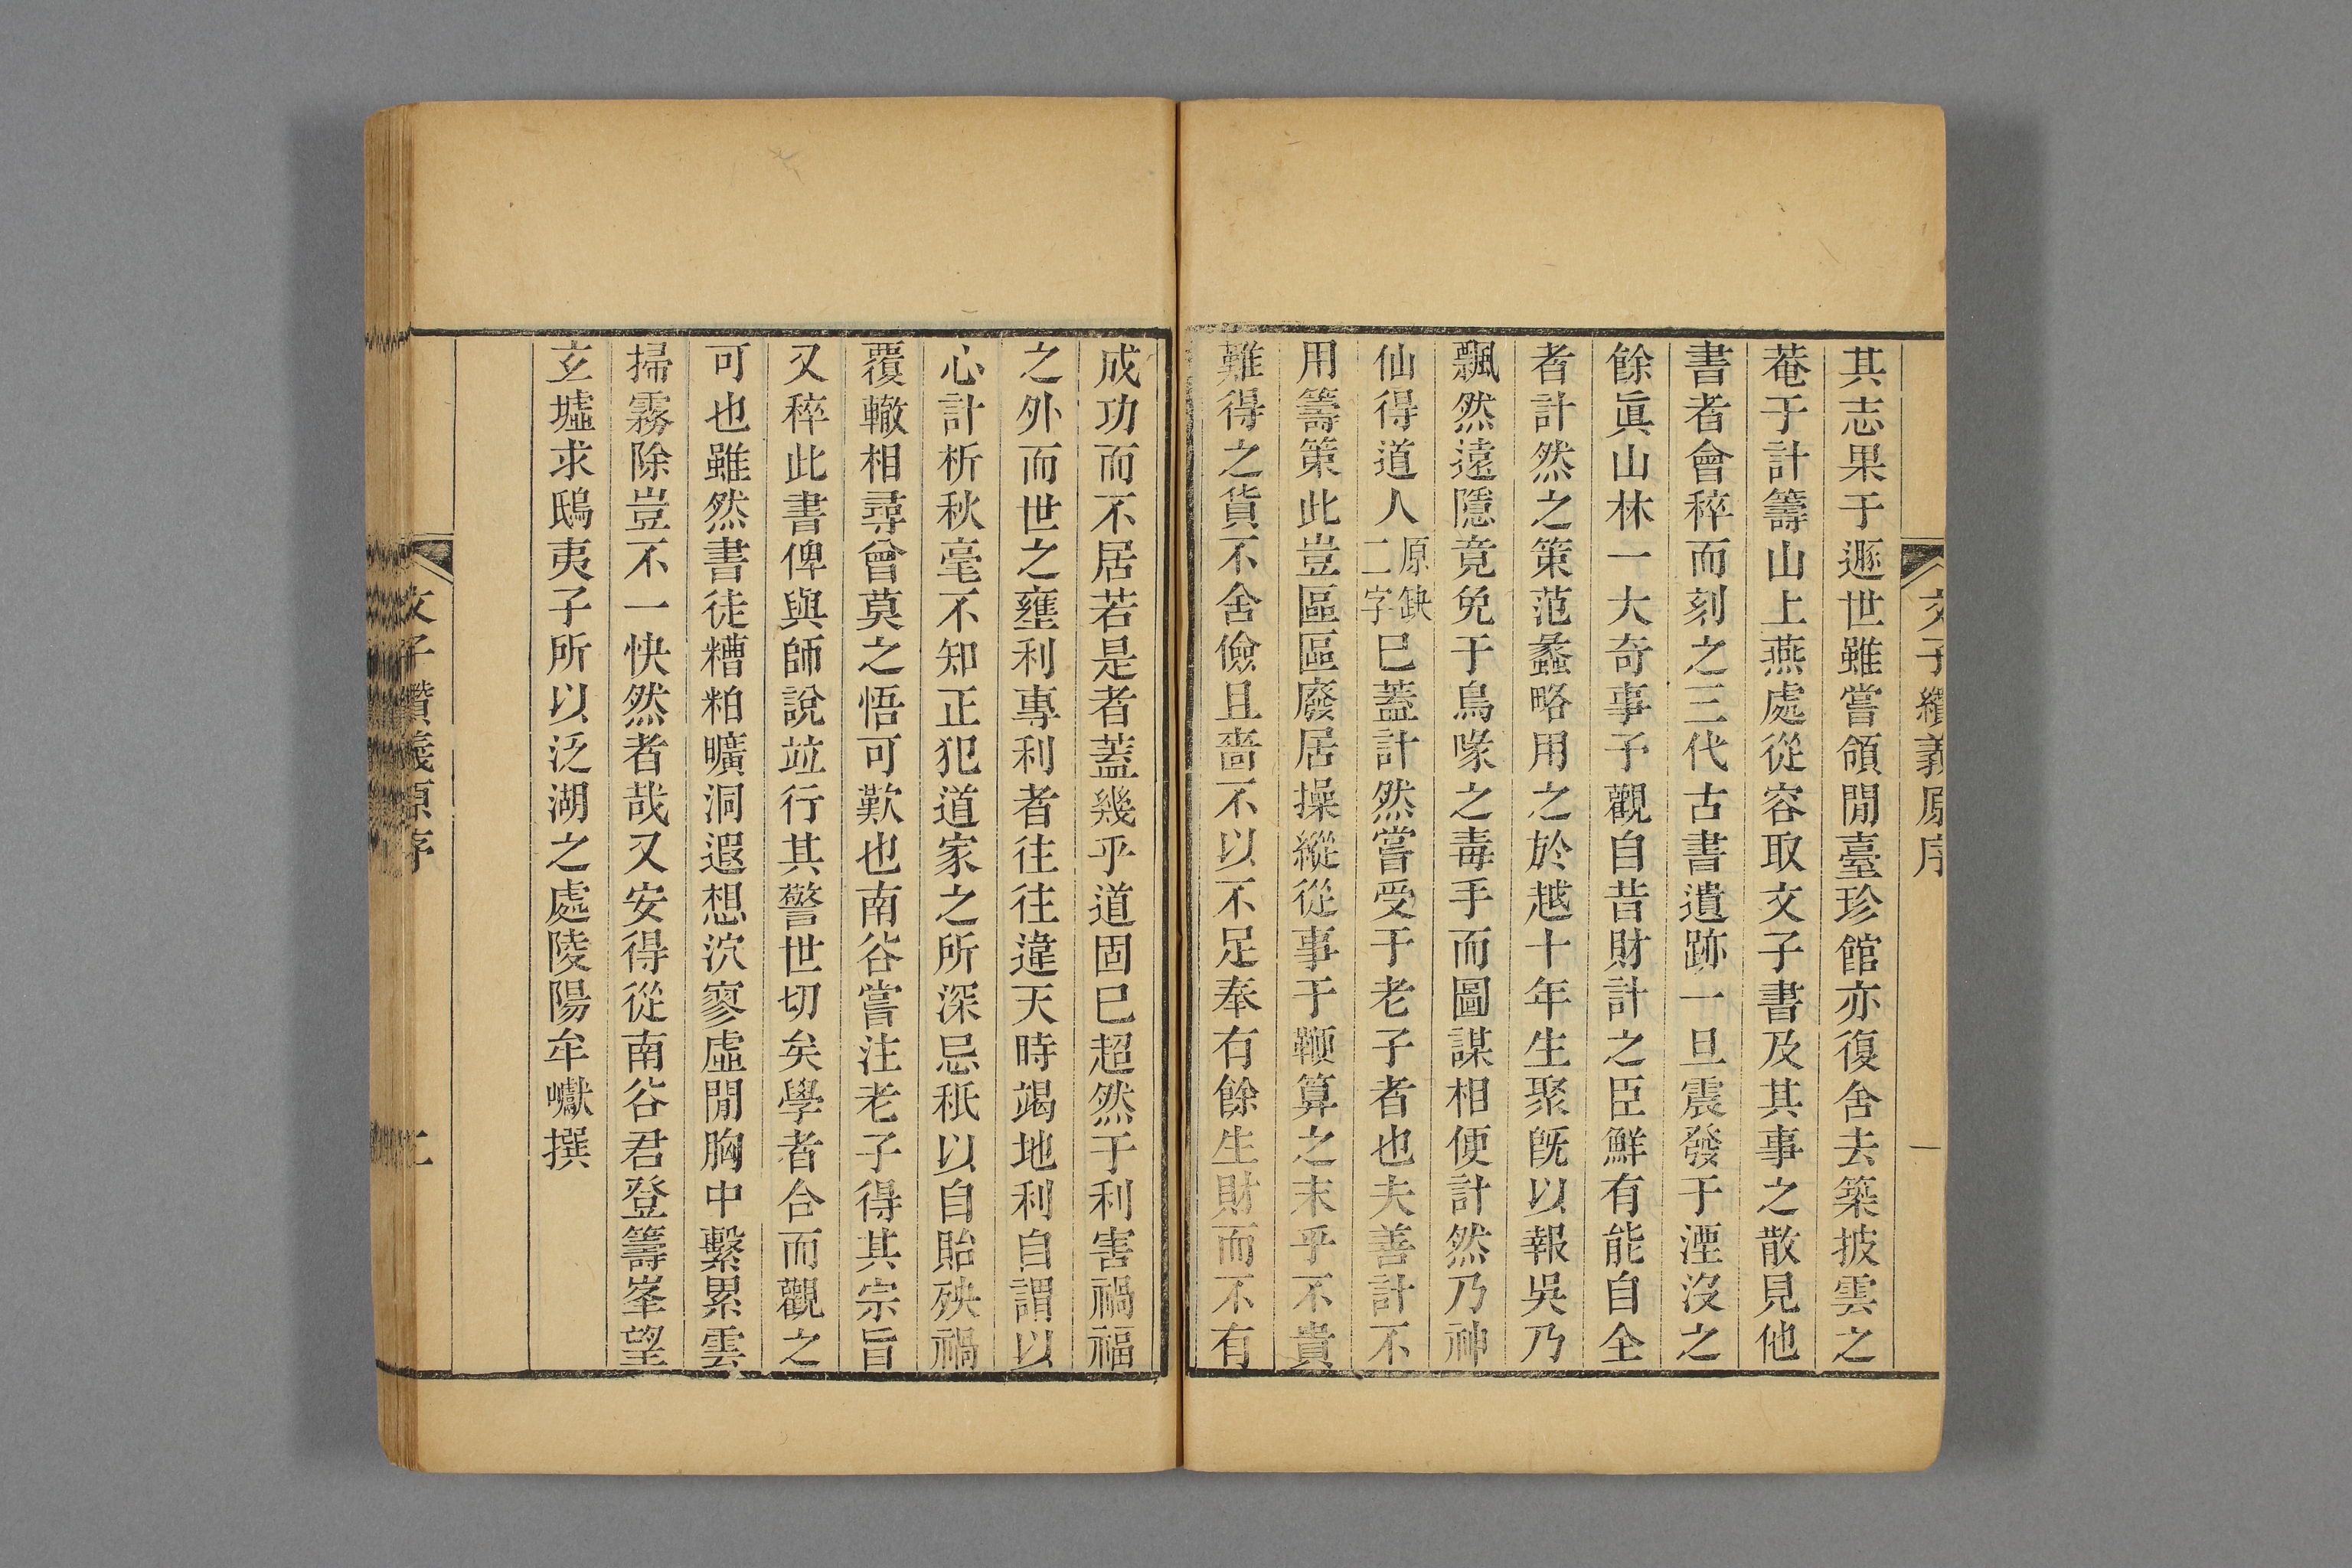 文子纘義原序
一
其志果于遯世雖嘗領閒臺珍館亦復舍去築披雲之
菴于計籌山上燕處從容取文子書及其事之散見他
書者會稡而刻之三代古書遺跡一旦震發于湮沒之
餘眞山林一大奇事予觀自昔財計之臣鮮有能自全
者計然之策范蠡略用之於越十年生聚旣以報吳乃
飄然遠隱竟免于鳥喙之毒手而圖謀相便計然乃神
仙得道人原缺二字巳蓋計然嘗受于老子者也夫善計不
用籌策此豈區區廢居操縱從事于鞭算之末乎不貴
難得之貨不舍儉且嗇不以不足奉有餘生財而不有
成功而不居若是者蓋幾乎道固巳超然于利害禍福
之外而世之壅利專利者往往違天時竭地利自謂以
心計析秋毫不知正犯道家之所深忌秖以自貽殃禍
覆轍相尋曾莫之悟可歎也南谷嘗注老子得其宗旨
又稡此書俾與師說竝行其警世切矣學者合而觀之
可也雖然書徒糟粕曠洞遐想泬寥虛閒胸中繫累雲
掃霧除豈不一快然者哉又安得從南谷君登籌峯望
玄墟求鴟夷子所以泛湖之處陵陽牟巘撰
文子纘義原序
二